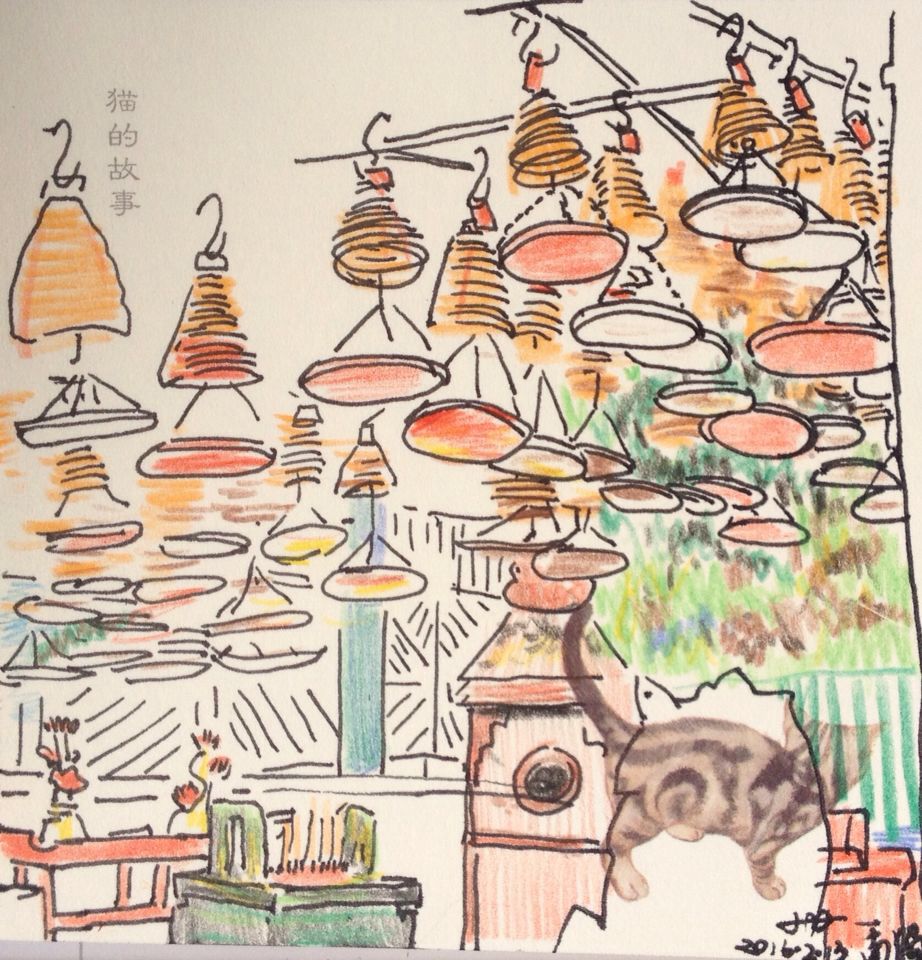 猫的故事
2016.2.13